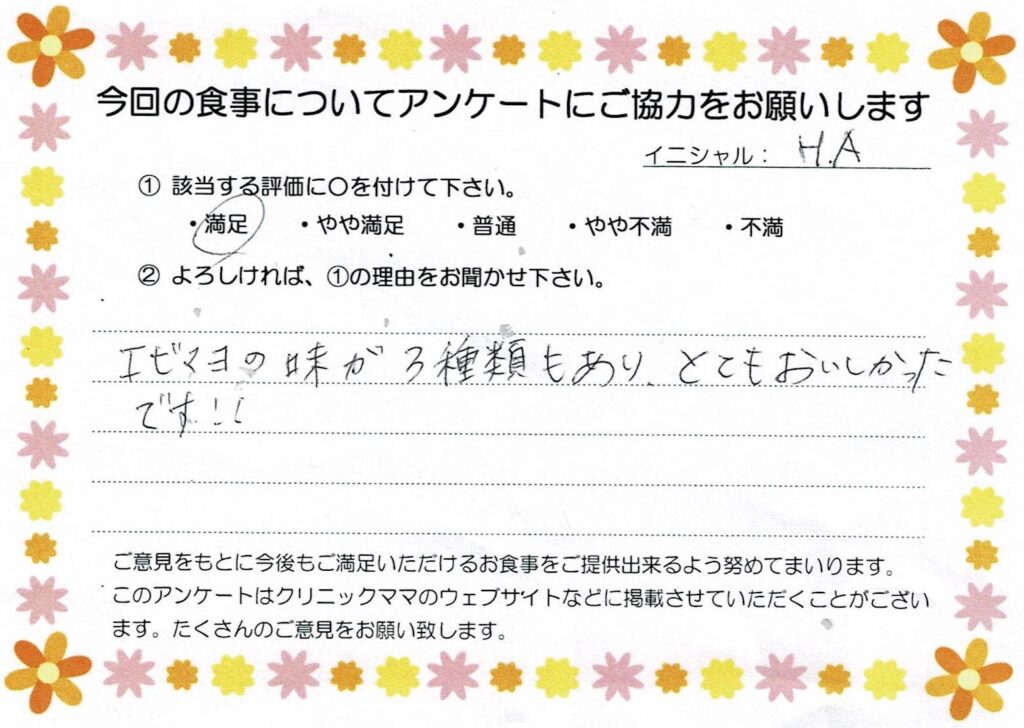 今回の食事についてアンケートにご協力をお願いします
イニシャル： H.A
① 該当する評価に○を付けて下さい。
・満足 ・やや満足 ・普通 ・やや不満 ・不満
② よろしければ、①の理由をお聞かせ下さい。
エビマヨの味が3種類もあり、とてもおいしかった
です!!
ご意見をもとに今後もご満足いただけるお食事をご提供出来るよう努めてまいります。
このアンケートはクリニックママのウェブサイトなどに掲載させていただくことがござい
ます。たくさんのご意見をお願い致します。